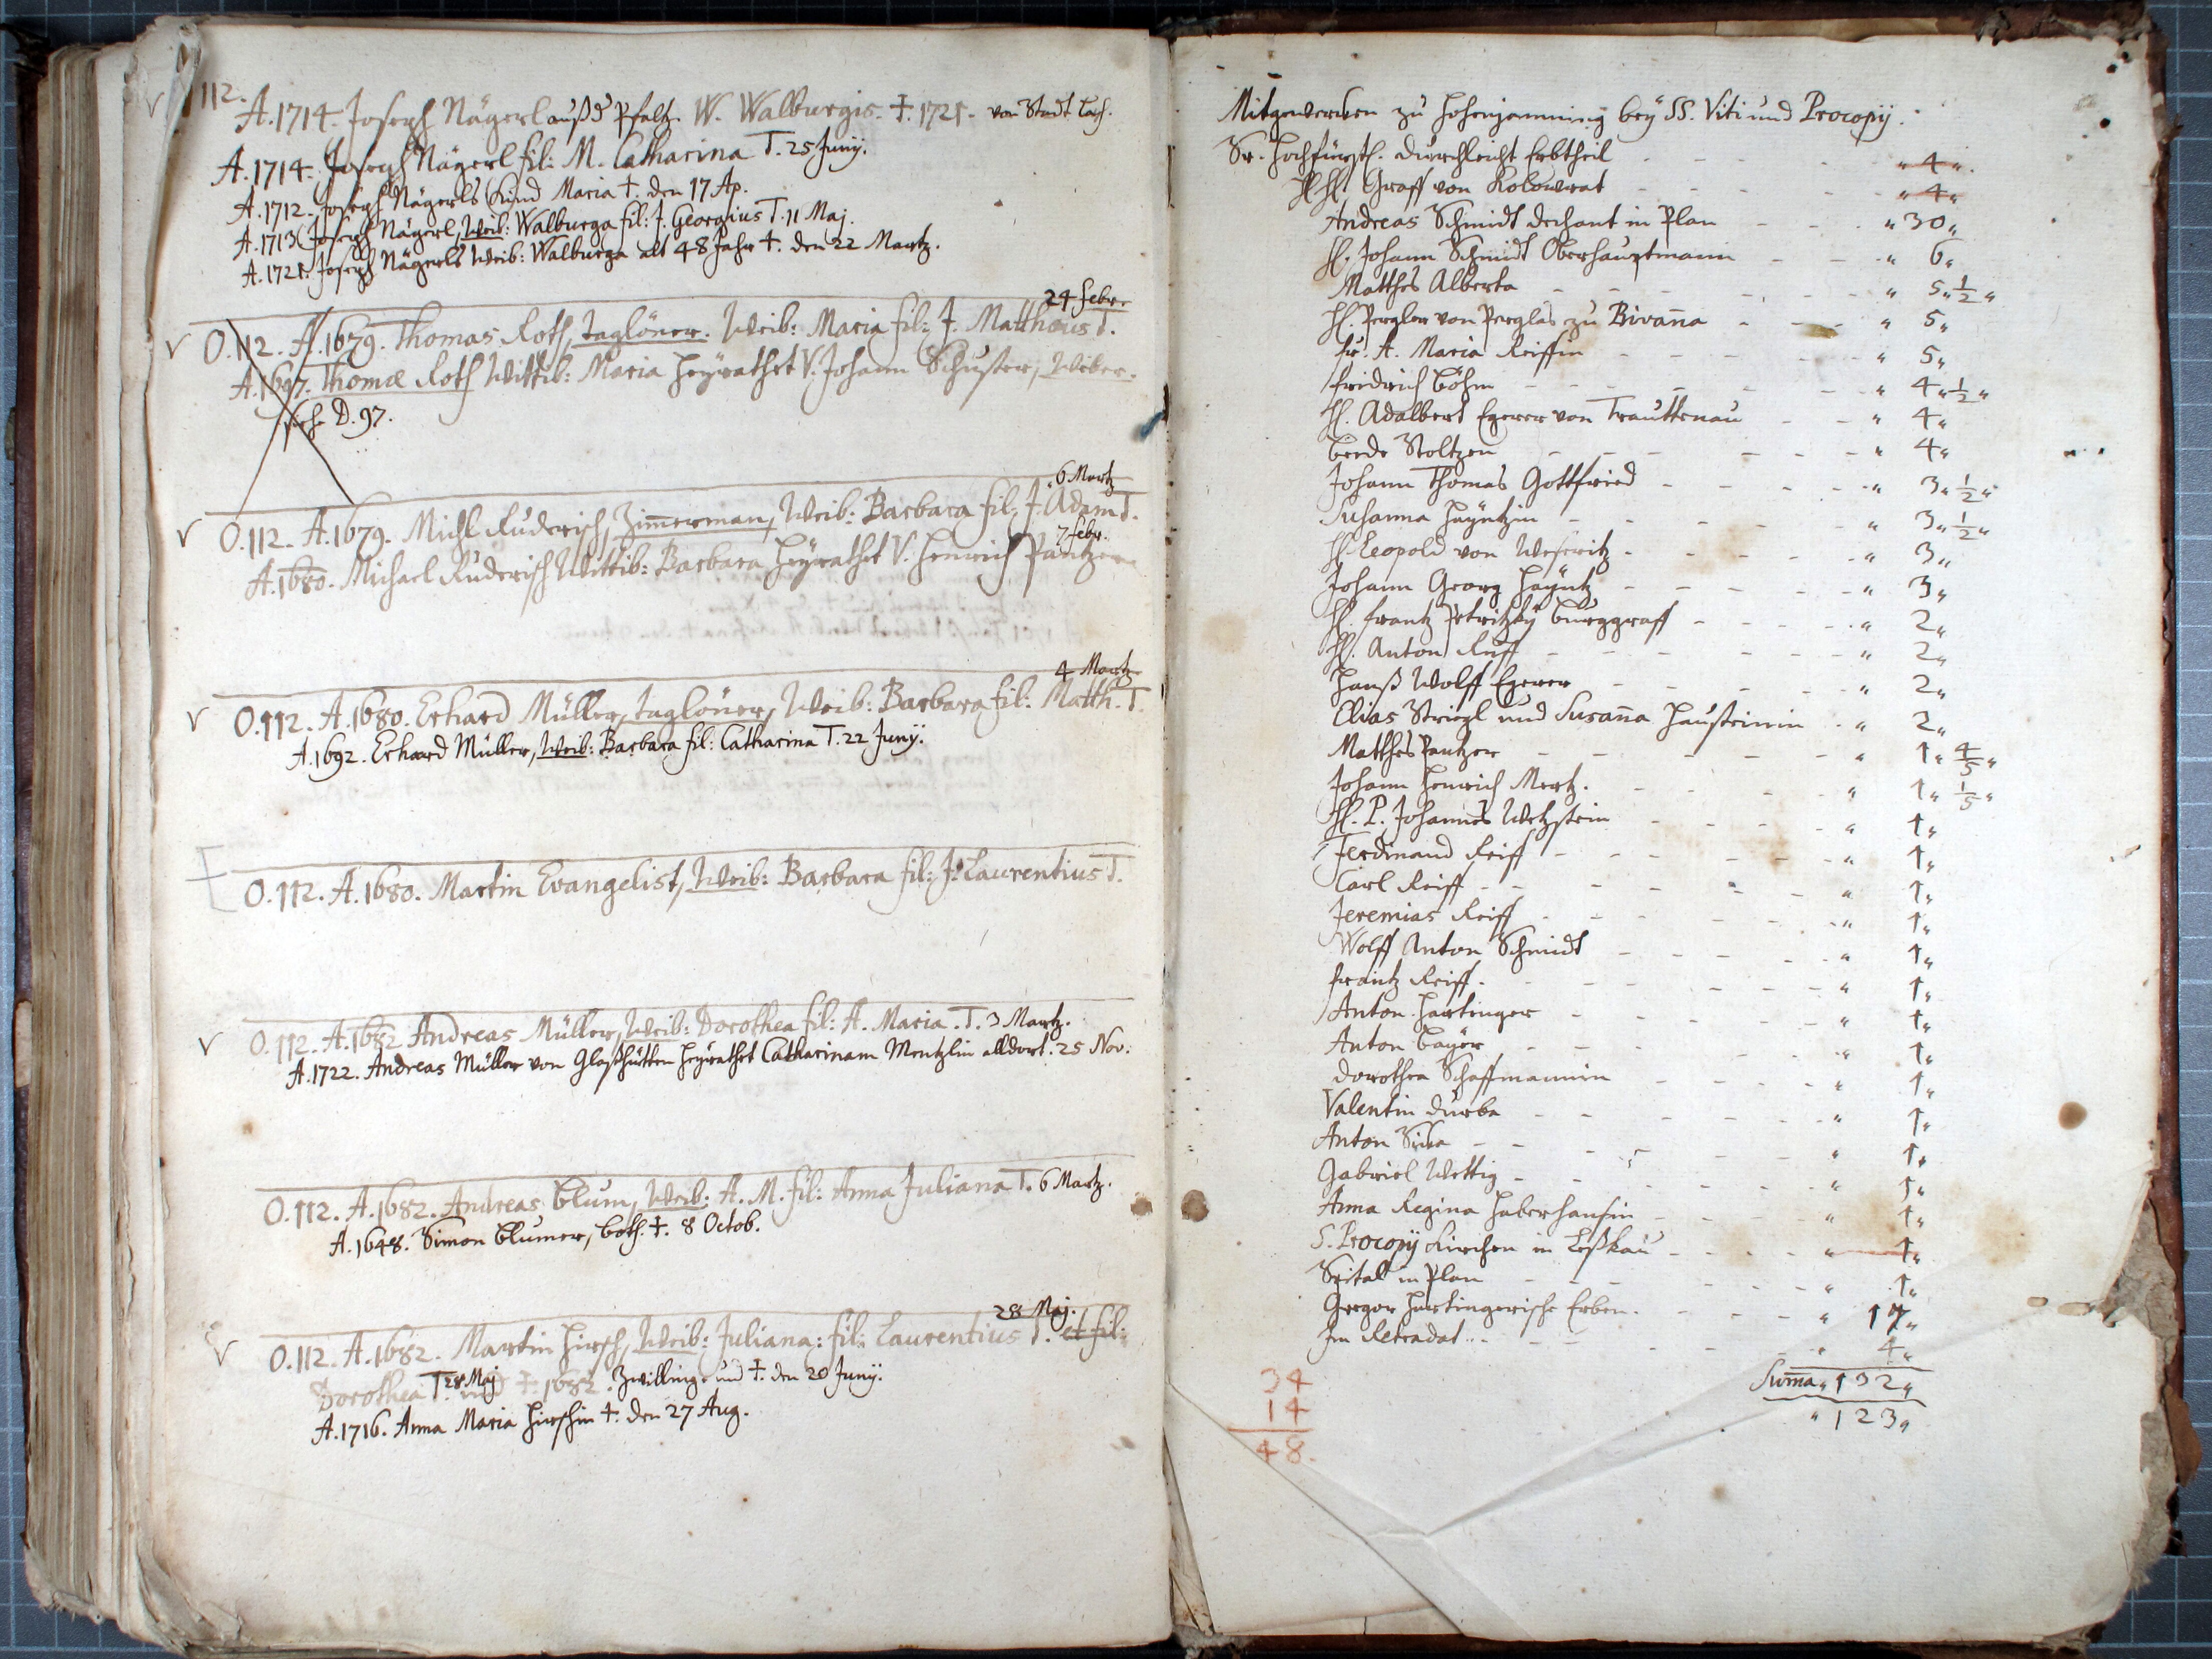 112.
A. 1714. Joseph Nägerl auß d Pfaltz. W. Walburgis. †. 1721. von Stadt
A. 1714. Joseph Nägerl fil: M. Catharina T. 25 Junÿ.
A. 1712. Joseph Nägerls Kind Maria †. den 17 Ap.
A. 1713 Joseph Nägerl, Weib: Walburga fil: J. Georgius T. 11 Maj.
A. 1721. Joseph Nägerls Weib: Walburga alt 48 Jahr †. den 22 Martz.
24 febr.
O. 112. A. 1679. Thomas Roth, Taglöner. Weib: Maria fil: J. Matthæus T.
A. 1697. Thomæ Roth Wittib: Maria heÿrathet V. Johann Schuster, Weber.
sieh D. 97.
6 Martz
O. 112. A. 1679. Michl Ruderisch, Zimmerman, Weib: Barbara fil: J. Adam T.
7 febr.
A. 1680. Michael Ruderisch Wittib: Barbara heÿrathet V. Henrich Pantzer
4 Martz
O. 112. A. 1680. Erhard Müller, Taglöner, Weib: Barbara fil: Matth. T.
A. 1692. Erhard Müller, Weib: Barbara fil: Catharina T. 22 Junÿ.
O. 112. A. 1680. Martin Evangelist, Weib: Barbara fil: J. Laurentius T.
O. 112. A. 1682 Andreas Müller, Weib: Dorothea fil: A. Maria. T. 3 Martz.
A. 1722. Andreas Müller von Glaßhütten heÿrathet Catharinam Mentzlin alldort. 25 Nov.
O. 112. A. 1682. Andreas Blum, Weib: A. M. fil: Anna Juliana T. 6 Martz.
A. 1648. Simon Blumer, Both. †. 8 Octob.
28 Maj.
O. 112. A. 1682. Martin Hirsch, Weib: Juliana: fil: Laurentius T. et fil:
Dorothea T. 28 Maj und †. 1682. Zwilling. und †. den 20 Junÿ.
A. 1716. Anna Maria Hirschin †. den 27 Aug.
Mitgewerken zu Hohenjamning beÿ SS. Viti und Procopÿ.
Sr. Hochfürstl. Durchleicht Erbtheil - - - " 4 "
Graff von Kolowrat - - - " 4 "
Andreas Schmidt Dechant in Plan - - - " 30 "
H. Johann Schmidt Oberhauptmann - - - " 6 "
Matthes Alberta - - - " 5 " 1/2 "
H. Pergler von Perglas zu Bivanna - - - " 5 "
fr. A. Maria Reiffin - - - " 5 "
fridrich Böhm - - - " 4 " 1/2 "
H. Adalbert Egerer von Trauttenau - - - " 4 "
Beede Stoltzen - - - " 4 "
Johann Thomas Gottfried - - - " 3 " 1/2 "
Susanna Haÿntzin - - - " 3 " 1/2 "
H. Leopold von Weseritz - - - " 3 "
Johann Georg Haÿntz - - - " 3 "
H. frantz Petritzkÿ Burggraff - - - " 2 "
H. Anton Ruff - - - " 2 "
Hanß Wolff Egerer - - - " 2 "
Elias Striegl und Susanna Hausteinin - " 2 "
Matthes Pantzer - - - " 1 " 4/5 "
Johann Henrich Mertz. - - - " 1 " 1/5 "
H. P. Johannes Wetzstein - - - " 1 "
Ferdinand Reiff - - - " 1 "
Carl Reiff - - - " 1 "
Jeremias Reiff - - - " 1 "
Wolff Anton Schmidt - - - " 1 "
frantz Reiff. - - - " 1 "
Anton Hartinger - - - " 1 "
Anton Baÿer - - - " 1 "
Dorothea Schaffmannin - - - " 1 "
Valentin Durba - - - " 1 "
Anton - - - " 1 "
Gabriel Wettig - - - " 1 "
Anna Regina Haberhansin - - - " 1 "
S. Procopÿ Kirchen in Leßkau - - - " 1 "
Spital in Plan - - - " 1 "
Gregor Hartingerische Erben. - - - " 17 "
Im Retradat. - - - " 4 "
Summa " 132 "
" 123 "
34
14
48.